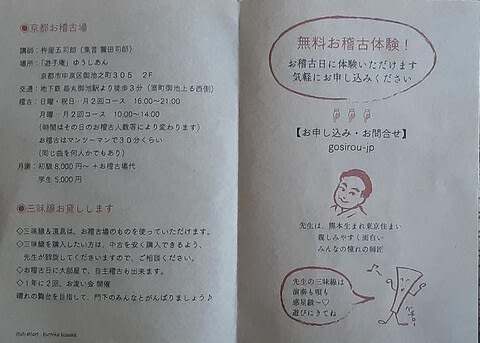 ◉京都お稽古場
講師：杵屋五司郎（集音 鷲田司郎）
場所：「遊子庵」ゆうしあん
京都市中京区御池之町３０５　２F
交通：地下鉄 烏丸御池駅より徒歩３分（室町御池上る西側）
稽古：日曜・祝日…月２回コース　16:00～21:00
月曜…月２回コース　10:00～14:00
（時間はその日のお稽古人数等により変わります）
お稽古はマンツーマンで３０分くらい
（同じ曲を何人かでもあり）
月謝：初級 8,000円～ ＋お稽古場代
学生 5,000円
◉三味線お貸しします
◇三味線＆道具は、お稽古場のものを使っていただけます。
◇三味線を購入したい方は、中古を安く購入できるよう、
先生が師奨してくださいますので、ご相談ください。
◇お稽古日に大部屋で、自主稽古も出来ます。
◇１年に２回、お浚い会 開催
晴れの舞台を目指して、門下のみんなとがんばりましょう♪
無料お稽古体験！
お稽古日に体験いただけます
気軽にお申し込みください
【お申し込み・お問合せ】
gosirou-jp
先生は、熊本生まれ東京住まい
親しみやすく面白い
みんなの憧れの師匠
先生の三味線は
演奏も唄も
惑星級～♡
遊びにきてね